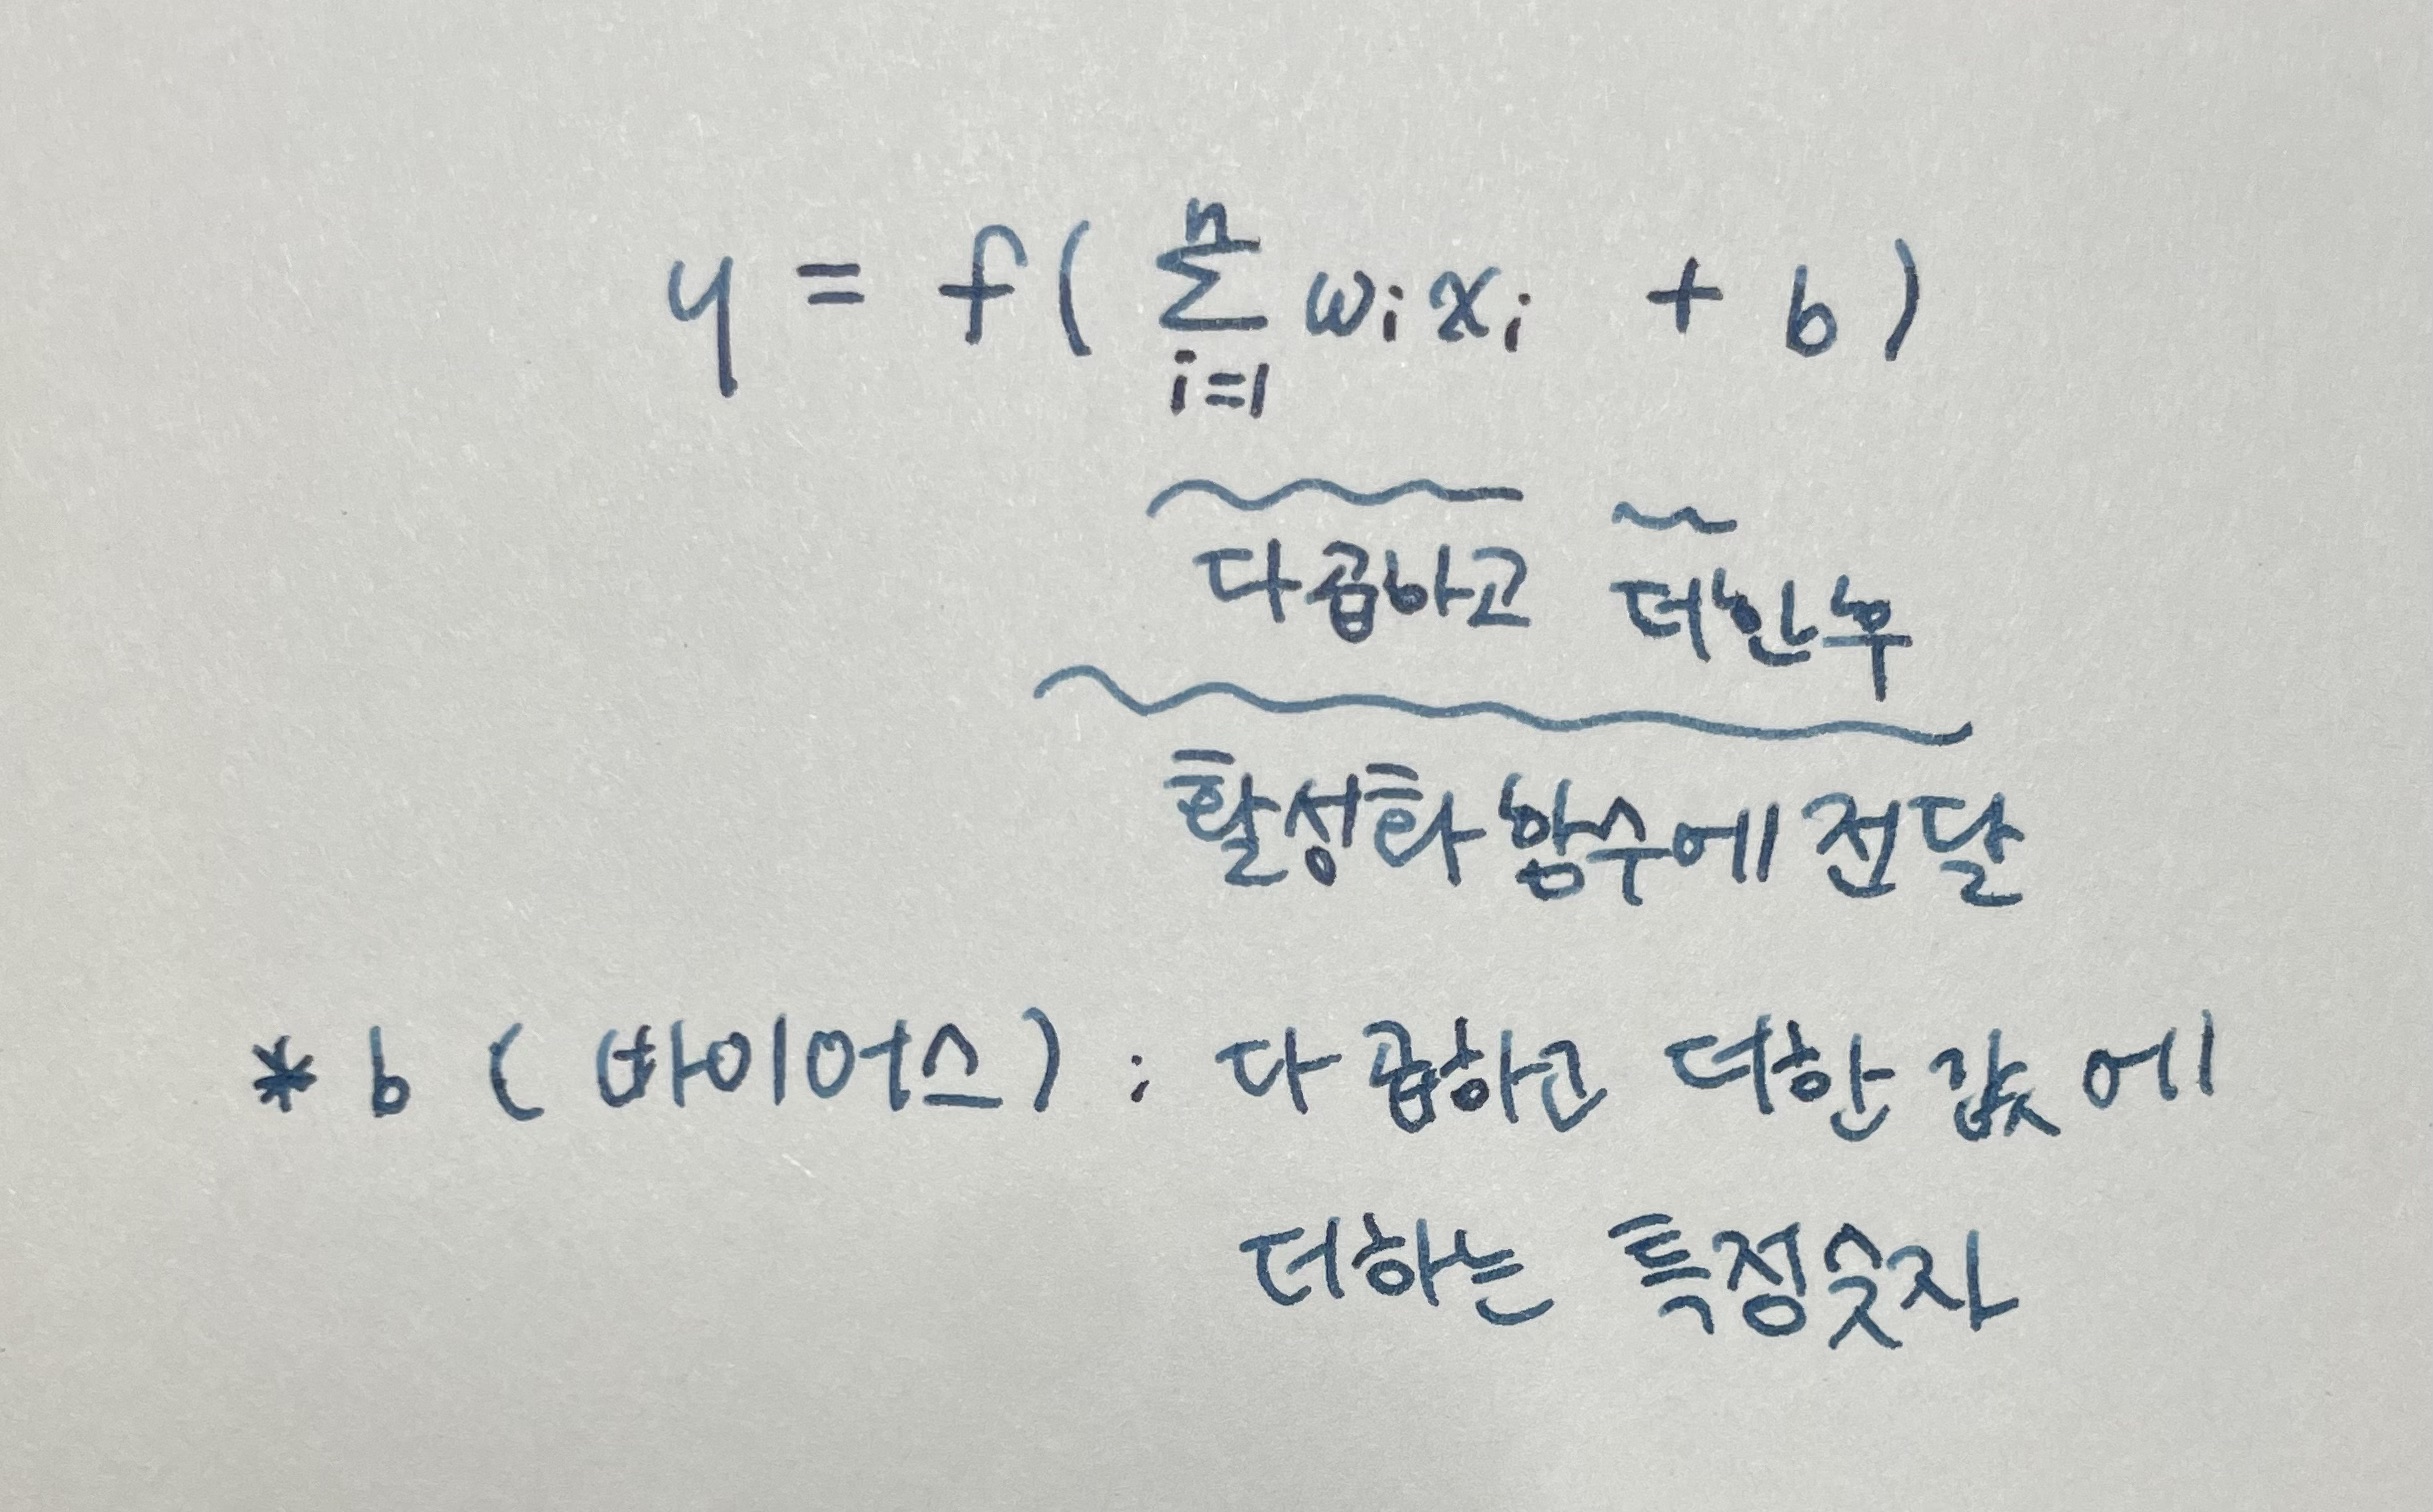 y = f( Σ_{i=1}^{n} ωᵢxᵢ + b )
다곱하고 더한후
활성화 함수에 전달
* b ( 바이어스 ) : 다 곱하고 더한 값에
더하는 특정숫자